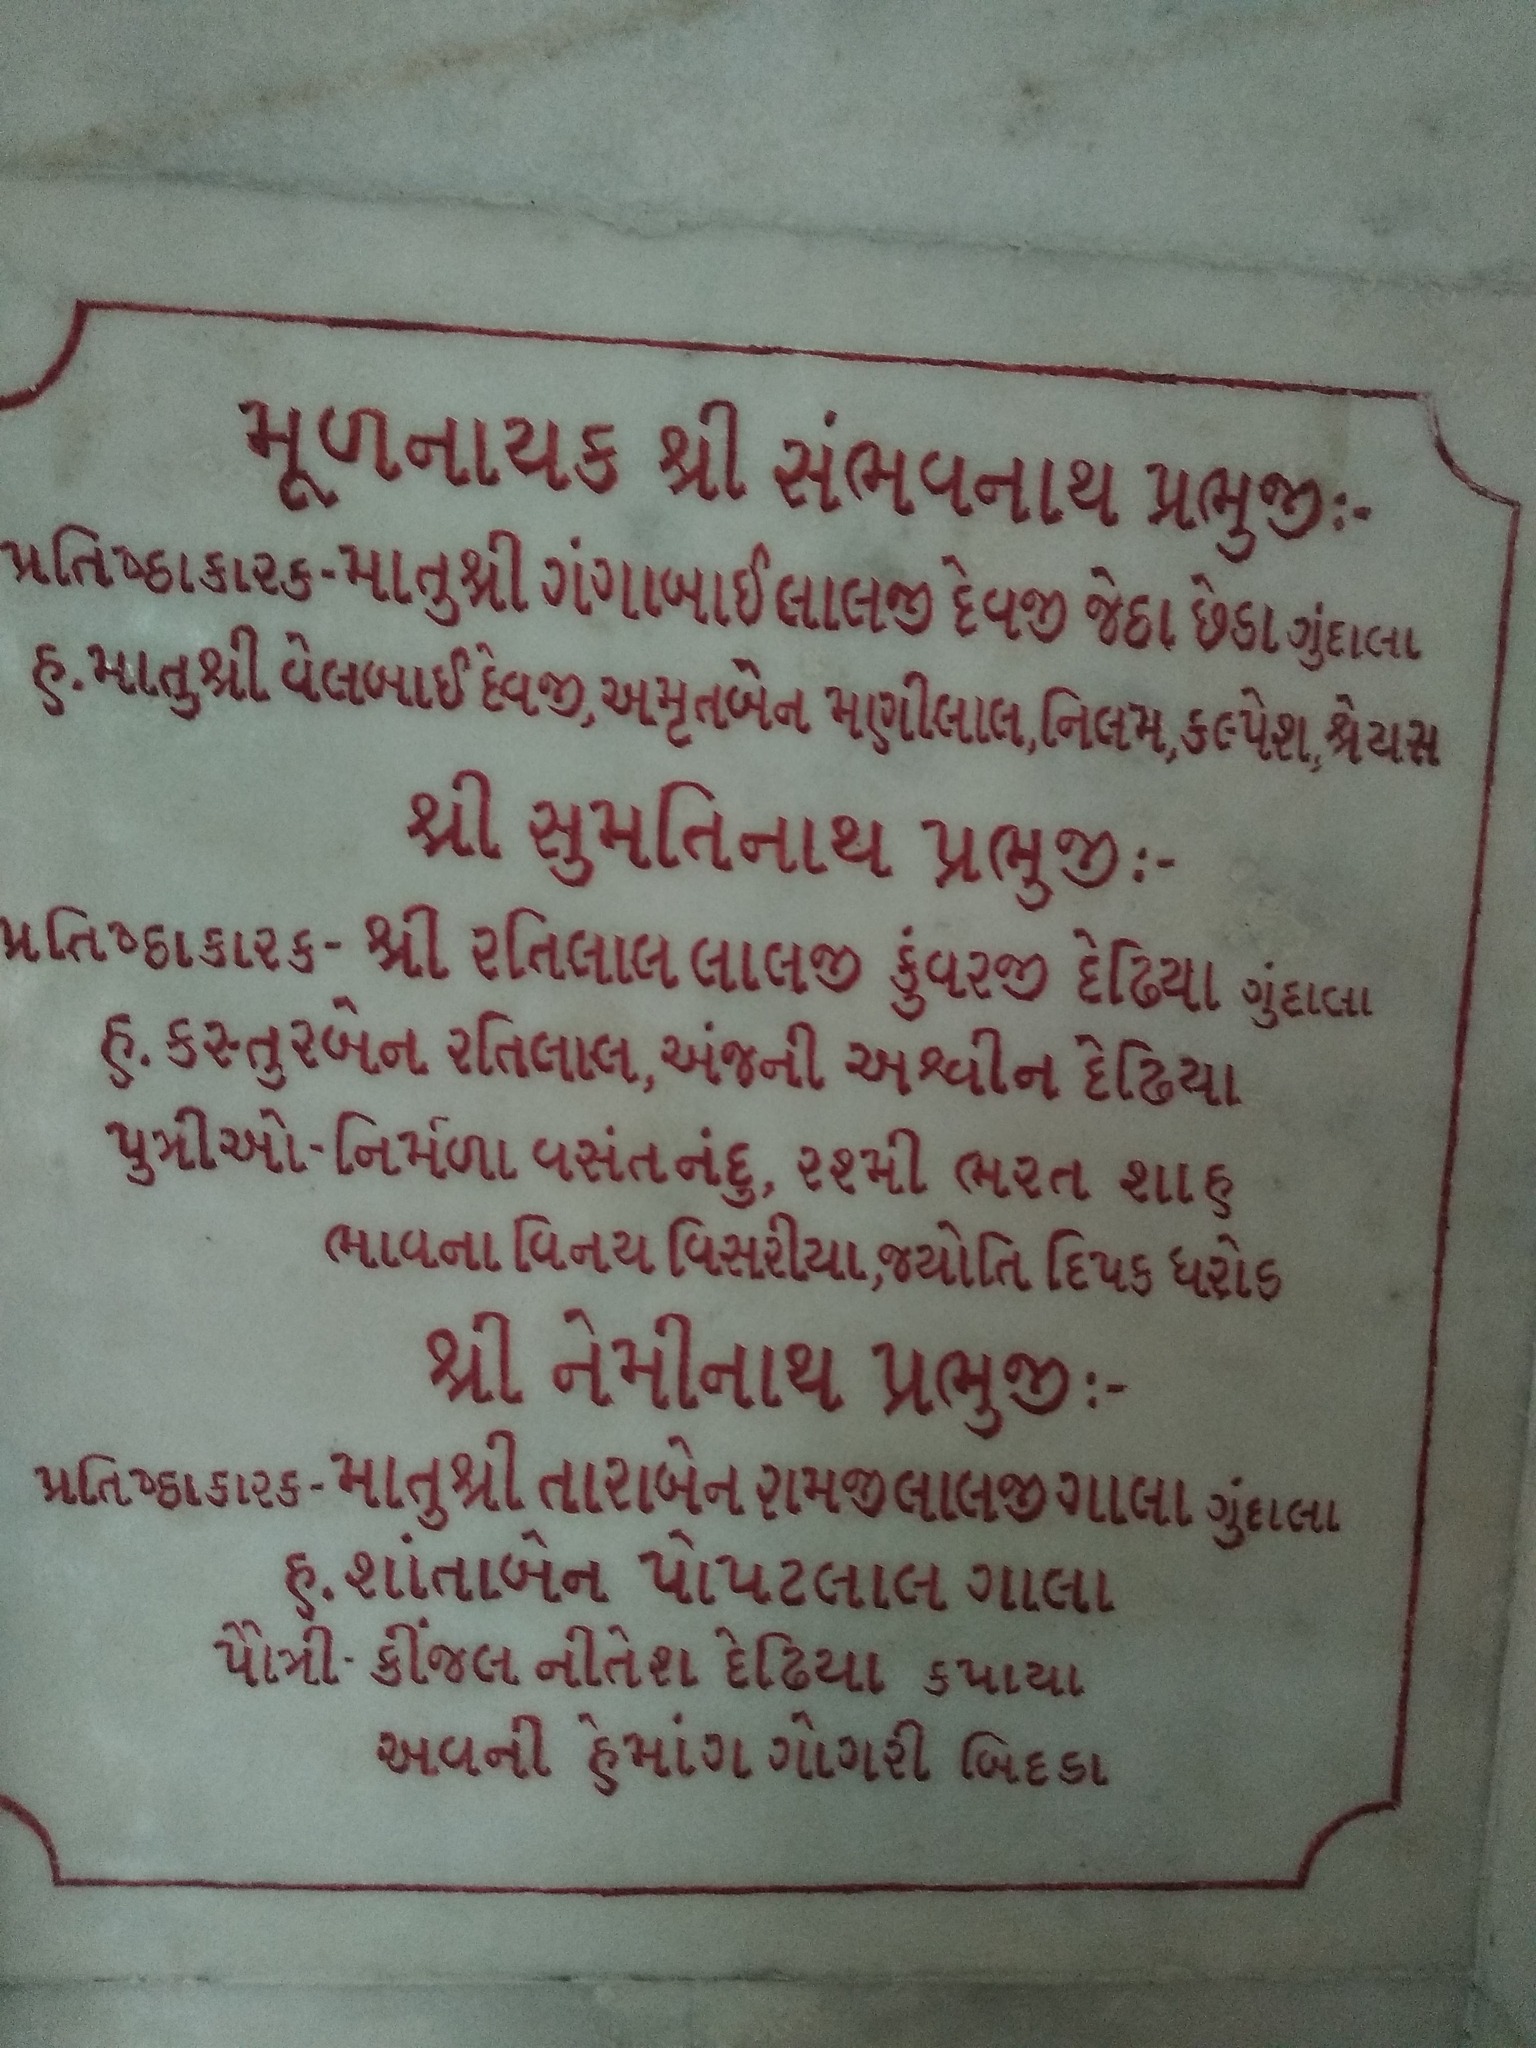 મૂળનાયક શ્રી સંભવનાથ પ્રભુજી:-
પ્રતિષ્ઠાકારક-માતુશ્રી ગંગાબાઈ લાલજી દેવજી જેઠા છેડા ગુંદાલા
હ. માતુશ્રી વેલબાઈ દેવજી, અમૃતબેન મણીલાલ, નિલમ, કલ્પેશ, શ્રેયસ
શ્રી સુમતિનાથ પ્રભુજી:-
પ્રતિષ્ઠાકારક- શ્રી રતિલાલ લાલજી કુંવરજી દેઢિયા ગુંદાલા
હ. કસ્તુરબેન રતિલાલ, અંજની અશ્વીન દેઢિયા
પુત્રીઓ-નિર્મળા વસંત નંદુ, રશ્મી ભરત શાહ
ભાવના વિનય વિસરીયા, જ્યોતિ દિપક ધરોડ
શ્રી નેમીનાથ પ્રભુજી:-
પ્રતિષ્ઠાકારક-માતુશ્રી તારાબેન રામજી લાલજી ગાલા ગુંદાલા
હ. શાંતાબેન પોપટલાલ ગાલા
પૌત્રી- કીંજલ નીતેશ દેઢિયા કપાયા
અવની હેમાંગ ગોગરી બિદડા